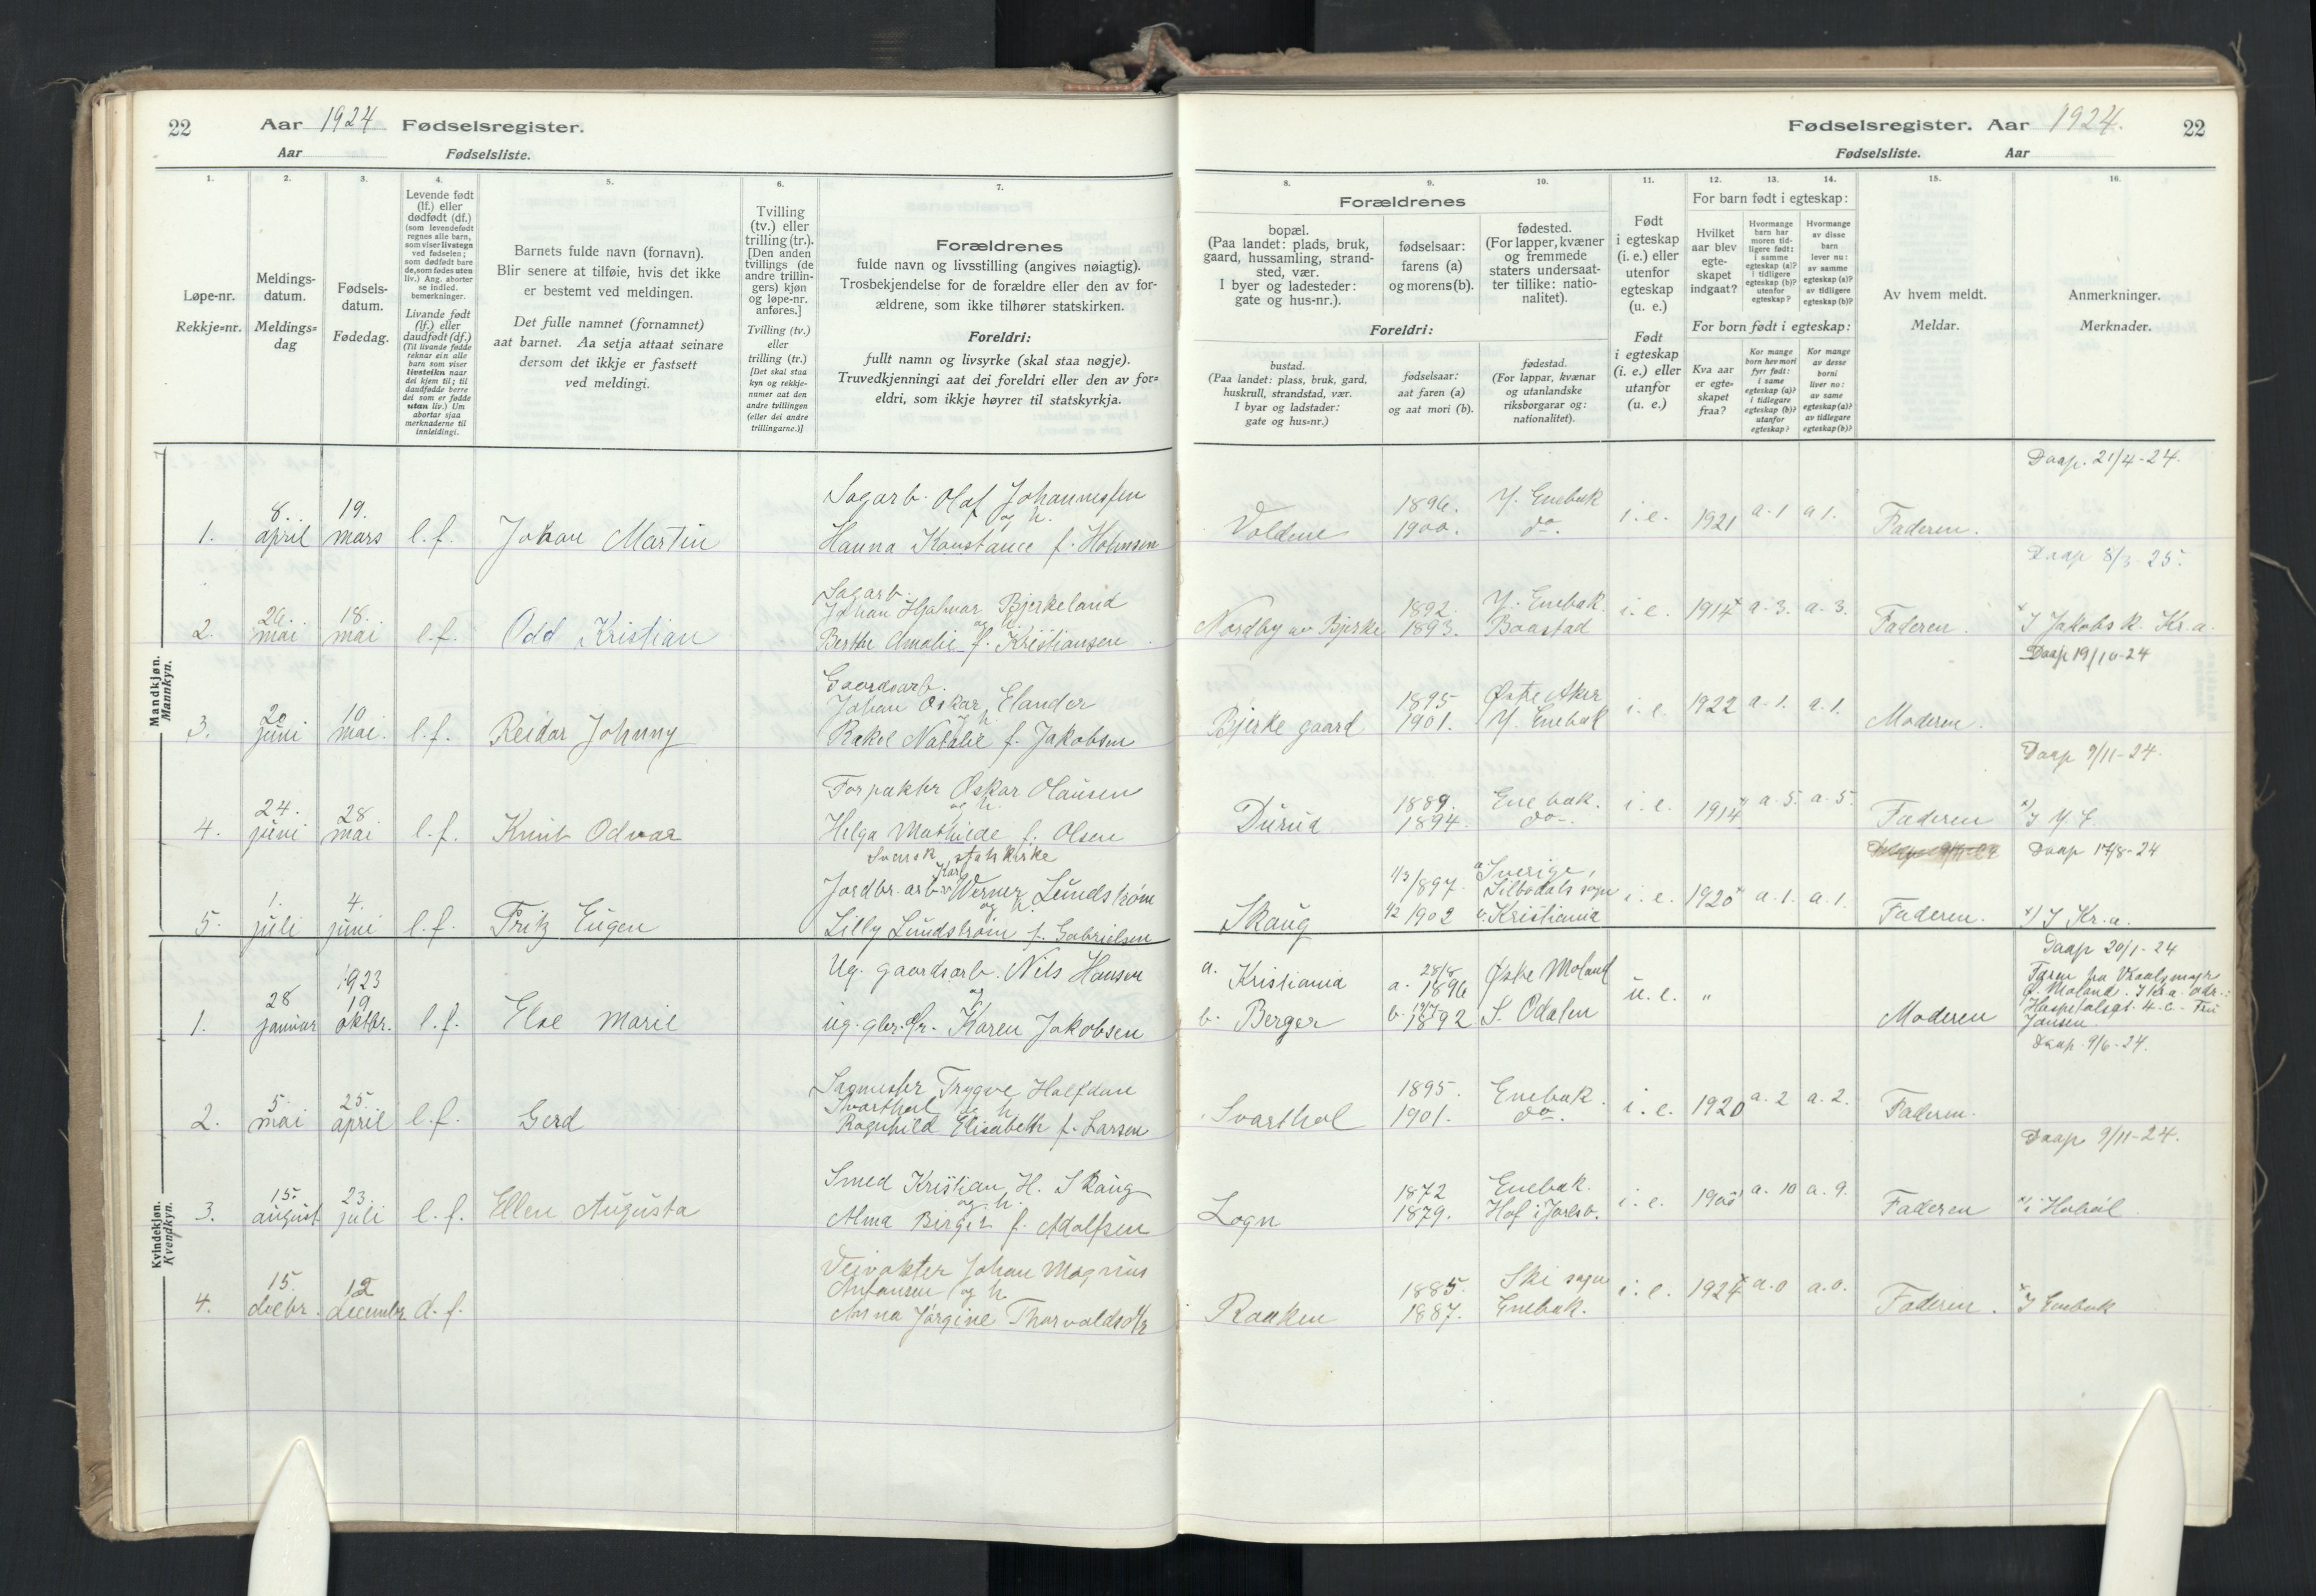 22 Aar 1924 Fødselsregister.
Aar Fødselsliste.
1. 2. 3. 4. 5. 6. 7.
Løpe-nr.
Rekkje=nr.
Meldings-
datum.
Meldings=
dag
Fødsels-
datum.
Fødedag.
Levende født
(lf.) eller
dødfødt (df.)
(som levendefødt
regnes alle barn,
som viser livstegn
ved fødselen;
som dødfødt bare
de, som fødes uten
liv.) Ang. aborter
se indled.
bemerkninger.
Livande født
(lf.) eller
daudfødt (df.)
(Til livande fødde
reknar ein alle
barn som viser
livsteikn naar
dei kjem til; til
daudfødde berre
dei som er fødde
utan liv.) Um
abortar sjaa
merknaderne til
innleidingi.
Barnets fulde navn (fornavn).
Blir senere at tilføie, hvis det ikke
er bestemt ved meldingen.
Det fulle namnet (fornamnet)
aat barnet. Aa setja attaat seinare
dersom det ikkje er fastsett
ved meldingi.
Tvilling
(tv.) eller
trilling (tr.).
[Den anden
tvillings (de
andre trillin-
gers) kjøn
og løpe-nr.
anføres.]
Tvilling (tv.)
eller
trilling (tr.)
[Det skal staa
kyn og rekkje-
numer aat den
andre tvillingen
(eller dei andre
trillingarne.)]
Forældrenes
fulde navn og livsstilling (angives nøiagtig).
Trosbekjendelse for de forældre eller den av for-
ældrene, som ikke tilhører statskirken.
Foreldri:
fullt namn og livsyrke (skal staa nøgje).
Truvedkjenningi aat dei foreldri eller den av for=
eldri, som ikkje høyrer til statskyrkja.
Mandkjøn.
Mannkyn.
1. 8. april 19. mars l.f. Johan Martin
Sagarb. Olaf Johannessen
og h.
Hanna Konstance f. Holmsen
2. 26. mai 18. mai l.f. Odd Kristian
Sagarb.
Johan Hjalmar Bjerkeland
og h.
Berthe Amalie f. Kristiansen
3. 20 juni 10 mai. l.f. Reidar Johnny
Gaardsarb.
Johan Oskar Elander
h.
Rakel Natalie f. Jakobsen
4. 24. juni 28 mai l.f. Knut Odvar
Forpakter Oskar Olausen
og h.
Helga Mathilde f. Olsen
5. 1. juli 4. juni l.f. Fritz Eugen
Svensk statskirke
Karl
Jordbr. arb. Werner Lundstrøm
og h.
Lilly Lundstrøm f. Gabrielsen
Kvindekjøn.
Kvendkyn.
1. 28 januar 1923 19 oktbr. l.f. Else Marie
Ug. gaardsarb. Nils Hansen
og
ug. gbr. dtr. Karen Jakobsen
2. 5. mai 25. april l.f. Gerd
Sagmester Trygve Halfdan
Svarthol og h.
Ragnhild Elisabeth f. Larsen
3. 15. august 23. juli l.f. Ellen Augusta
Smed Kristian H. Skaug
og h.
Alma Birget f. Adolfsen
4. 15. decbr. 12 december d.f.
Veivokter Johan Magnus
Antonsen og h.
Anna Jørgine Thorvaldsdtr
Fødselsregister. Aar 1924. 22
Fødselsliste. Aar
8. 9. 10. 11. 12. 13. 14. 15. 16.
Forældrenes
bopæl.
(Paa landet: plads, bruk,
gaard, hussamling, strand-
sted, vær.
I byer og ladesteder:
gate og hus-nr.).
fødselsaar:
farens (a)
og morens (b).
fødested.
(For lapper, kvæner
og fremmede
staters undersaat-
ter tillike: natio-
nalitet).
Foreldri:
bustad.
(Paa landet: plass, bruk, gard,
huskrull, strandstad, vær.
I byar og ladstader:
gate og hus=nr.)
fødselsaar:
aat faren (a)
og aat mori (b).
fødestad.
(For lappar, kvænar
og utanlandske
riksborgarar og:
nationalitet).
Født
i egteskap
(i. e.) eller
utenfor
egteskap
(u. e.)
Født
i egteskap
(i. e.) eller
utanfor
(u. e.)
For barn født i egteskap:
Hvilket
aar blev
egte-
skapet
indgaat?
Hvormange
barn har
moren tid-
ligere født:
i samme
egteskap (a)?
i tidligere
egteskap (b)?
utenfor
egteskap?
Hvormange
av disse
barn
lever nu:
av samme
egteskap (a)?
av tidligere
egteskap (b)?
For born født i egteskap:
Kva aar
er egte=
skapet
fraa?
Kor mange
born hev mori
fyrr født:
i same
egteskap (a)?
i tidlegare
egteskap (b)?
utanfor
egteskap?
Kor mange
av desse
borni
liver no:
av same
egteskap (a)?
av tidlegare
egteskap (b)?
Av hvem meldt.
Meldar.
Anmerkninger.
Merknader.
Daap. 21/4-24.
Voldene 1896. 1900. Y. Enebak do. i.e. 1921 a.1 a 1. Faderen.
Daap 8/3-25.
Nordby av Bjerke 1892. 1893. Y. Enebak. Baastad i.e. 1914x a.3. a.3. Faderen. x I Jakobs k. Kr.a.
Daap 19/10-24
Bjerke gaard 1895 1901. Østre Aker Y. Enebak i.e. 1922 a.1. a.1. Moderen.
Daap 9/11-24.
Durud 1889. 1894. Enebak. do. i.e. 1914x a.5. a.5. Faderen x) I Y. E.
Daap 17/8-24
Skaug 1/3 1897. 1/2 1902 a. Sverige, Silbodals sogn b. Kristiania i.e. 1920x a.1. a.1. Faderen. x) I Kr.a.
Daap 20/1-24
a. Kristiania a. 28/8 1896 Østre Moland
b. Berger b. 1892 S. Odalen u.e. " Moderen
Ø. Moland. I Kr.a. adr.:
Hospitalsgt. 4. c - Fru
Jansen.
Daap. 9/6-24.
Svarthol 1895. 1901. Enebak. do. i.e. 1920 a.2 a.2. Faderen.
Daap. 9/11-24.
Logn 1872 1879. Enebak. Hof i Jarlsb. i.e. 1900x a.10 a.9. Faderen x) i Hobøl
Raaken 1885. 1887. Ski sogn Enebak. i.e. 1924x a.0 a.0. Faderen. x I Enebak